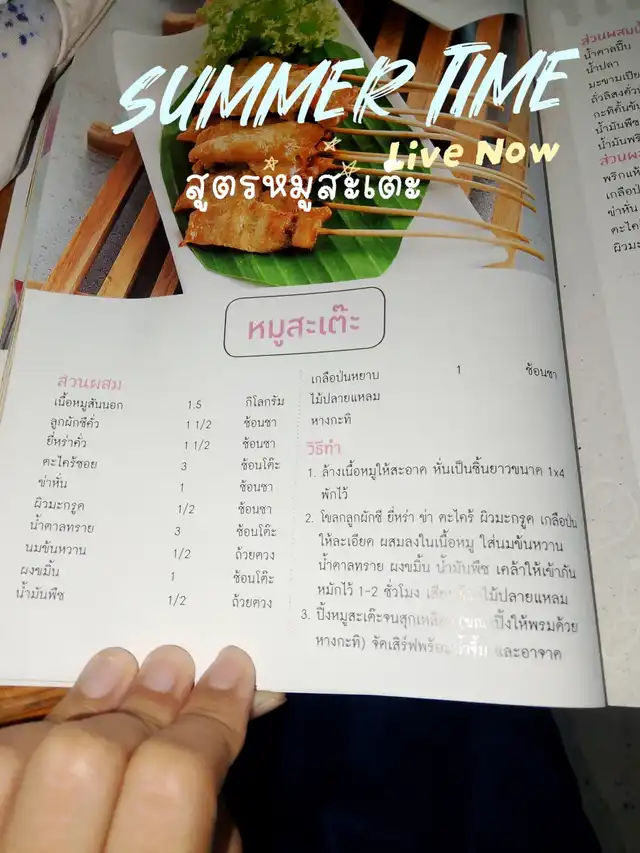 SUMMER TIME
Live Now
สูตรหมูสะเต๊ะ
หมูสะเต๊ะ
ส่วนผสม
เนื้อหมูสันนอก 1.5 กิโลกรัม
ลูกผักชีคั่ว 1 1/2 ช้อนชา
ยี่หร่าคั่ว 1 1/2 ช้อนชา
ตะไคร้ซอย 3 ช้อนโต๊ะ
ข่าหั่น 1 ช้อนชา
ผิวมะกรูด 1/2 ช้อนชา
น้ำตาลทราย 3 ช้อนโต๊ะ
นมข้นหวาน 1/2 ถ้วยตวง
ผงขมิ้น 1 ช้อนโต๊ะ
น้ำมันพืช 1/2 ถ้วยตวง
เกลือป่นหยาบ 1 ช้อนชา
ไม้ปลายแหลม
หางกะทิ
วิธีทำ
1. ล้างเนื้อหมูให้สะอาด หั่นเป็นชิ้นยาวขนาด 1x4
พักไว้
2. โขลกลูกผักชี ยี่หร่า ข่า ตะไคร้ ผิวมะกรูด เกลือป่น
ให้ละเอียด ผสมลงในเนื้อหมู ใส่นมข้นหวาน
น้ำตาลทราย ผงขมิ้น น้ำมันพืช เคล้าให้เข้ากัน
หมักไว้ 1-2 ชั่วโมง ไม้ปลายแหลม
3. ปิ้งหมูสะเต๊ะจนสุกเหลือง (ขณะปิ้งให้พรมด้วย
หางกะทิ) จัดเสิร์ฟพร้อมน้ำจิ้ม และอาจาด
ส่วนผสม
น้ำตาลปี๊บ
น้ำปลา
มะขามเปีย
ถั่วลิสงคั่ว
กะทิคั้นข้น
น้ำมันพืช
น้ำมันพริ
ส่วนผส
พริกแห้
เกลือป
ข่าหั่น
ตะไค
ผิวมะ